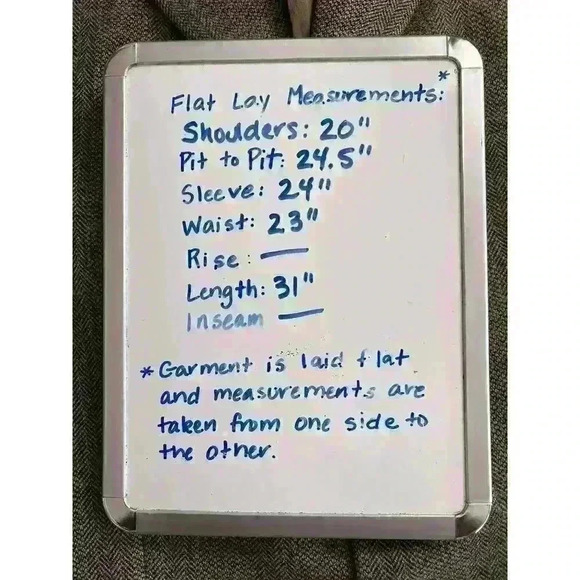 Flat Lay Measurements:*
Shoulders: 20"
Pit to Pit: 24.5"
Sleeve: 24"
Waist: 23"
Rise: —
Length: 31"
Inseam —
* Garment is laid flat
and measurements are
taken from one side to
the other.